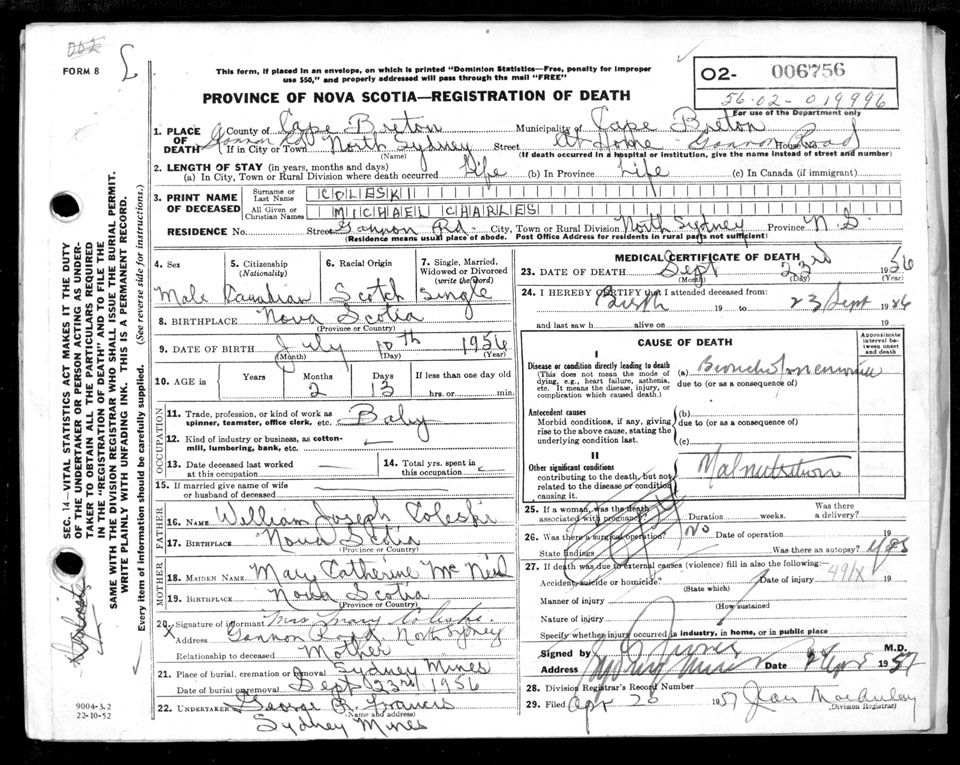 002
FORM 8
L
This form, if placed in an envelope, on which is printed "Dominion Statistics—Free, penalty for improper
use $50," and properly addressed will pass through the mail "FREE"
O2- 006756
56-02-019996
For use of the Department only
PROVINCE OF NOVA SCOTIA—REGISTRATION OF DEATH
1. PLACE OF DEATH
County of Cape Breton Municipality of Cape Breton
Gannon Rd If in City or Town North Sydney (Name) Street At Home - Gannon Road House No.
(If death occurred in a hospital or institution, give the name instead of street and number)
2. LENGTH OF STAY (in years, months and days)
(a) In City, Town or Rural Division where death occurred Life (b) In Province Life (c) In Canada (if immigrant)
3. PRINT NAME OF DECEASED
Surname or Last Name COLESKI
All Given or Christian Names MICHAEL CHARLES
RESIDENCE No. Street Gannon Rd. City, Town or Rural Division North Sydney Province N.S
(Residence means usual place of abode. Post Office Address for residents in rural parts not sufficient)
4. Sex Male
5. Citizenship (Nationality) Canadian
6. Racial Origin Scotch
7. Single, Married, Widowed or Divorced (write the word) Single
8. BIRTHPLACE Nova Scotia
(Province or Country)
9. DATE OF BIRTH July 10th 1956
(Month) (Day) (Year)
10. AGE in Years Months 2 Days 13 If less than one day old hrs. or min.
OCCUPATION
11. Trade, profession, or kind of work as spinner, teamster, office clerk, etc. Baby
12. Kind of industry or business, as cotton-mill, lumbering, bank, etc. —
13. Date deceased last worked at this occupation —
14. Total yrs. spent in this occupation —
15. If married give name of wife or husband of deceased —
FATHER
16. NAME William Joseph Coleski
17. BIRTHPLACE Nova Scotia
(Province or Country)
MOTHER
18. MAIDEN NAME Mary Catherine McNeil
19. BIRTHPLACE Nova Scotia
(Province or Country)
20. Signature of informant Mrs Mary Coleski
X Address Gannon Road North Sydney
Relationship to deceased Mother
21. Place of burial, cremation or removal Sydney Mines
Date of burial or removal Sept 23rd 1956
22. UNDERTAKER George R. Francis
(Name and address)
Sydney Mines
MEDICAL CERTIFICATE OF DEATH
23. DATE OF DEATH Sept 23rd 1956
(Month) (Day) (Year)
24. I HEREBY CERTIFY that I attended deceased from:
Birth 19 to 23 Sept 1956
and last saw h alive on 19
CAUSE OF DEATH
Approximate interval between onset and death
I
Disease or condition directly leading to death
(This does not mean the mode of dying, e.g., heart failure, asthenia, etc. It means the disease, injury, or complication which caused death.)
(a) Broncho pneumonia
due to (or as a consequence of)
Antecedent causes
Morbid conditions, if any, giving rise to the above cause, stating the underlying condition last.
(b)
due to (or as a consequence of)
(c)
II
Other significant conditions contributing to the death, but not related to the disease or condition causing it.
Malnutrition
25. If a woman, was the death associated with pregnancy? Duration weeks. Was there a delivery?
26. Was there a surgical operation? No Date of operation 19
State findings Was there an autopsy? yes
27. If death was due to external causes (violence) fill in also the following:
Accident, suicide or homicide? Date of injury 491X 19
(State which)
Manner of injury
(How sustained)
Nature of injury
Specify whether injury occurred in industry, in home, or in public place
Signed by M.D.
Address Sydney Mines Date 2 Apr 1957
28. Division Registrar's Record Number
29. Filed Apr 25 1957 Jean MacAulay
(Division Registrar)
SEC. 14—VITAL STATISTICS ACT MAKES IT THE DUTY
OF THE UNDERTAKER OR PERSON ACTING AS UNDER-
TAKER TO OBTAIN ALL THE PARTICULARS REQUIRED
IN THE "REGISTRATION OF DEATH" AND TO FILE THE
SAME WITH THE DIVISION REGISTRAR WHO SHALL ISSUE THE BURIAL PERMIT.
WRITE PLAINLY WITH UNFADING INK. THIS IS A PERMANENT RECORD.
Every item of information should be carefully supplied. (See reverse side for instructions.)
9004-3.2
22-10-52